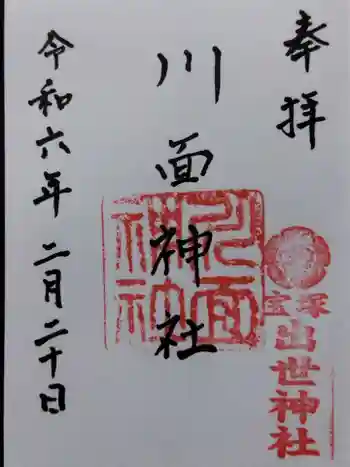 奉拝
川面神社
川面神社
宝塚
出世神社
令和六年二月二十日